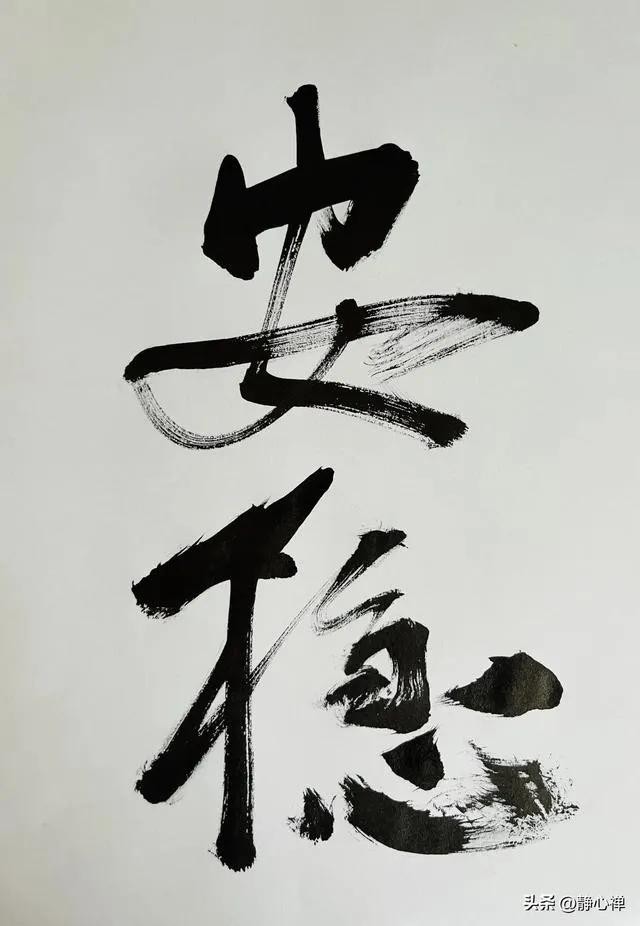 安
稳
头条 @静心禅